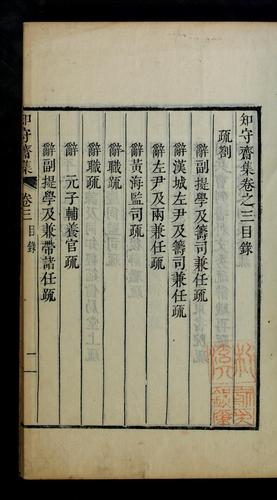 知守齋集卷之三目錄
疏劄
辭副提學及籌司兼任疏
辭漢城左尹及籌司兼任疏
辭左尹及兩兼任疏
辭黃海監司疏
辭職疏
辭職疏
辭 元子輔養官疏
辭副提學及兼帶諸任疏
知守齋集
卷三 目錄
一